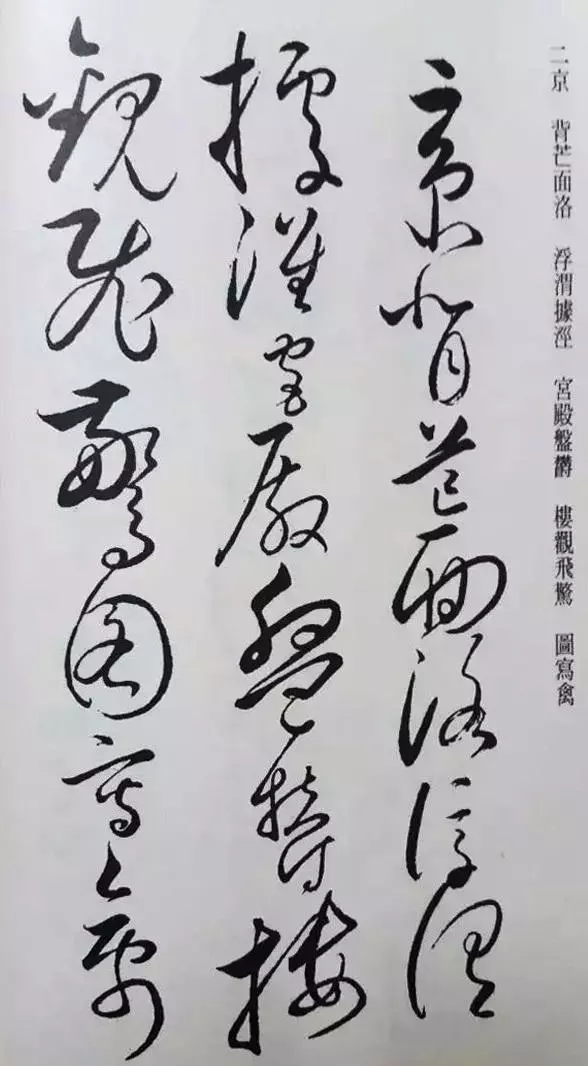 二京 背芒面洛 浮渭據涇 宮殿盤鬱 樓觀飛驚 圖寫禽
二京背芒面洛浮渭
據涇宮殿盤鬱樓
觀飛驚圖寫禽